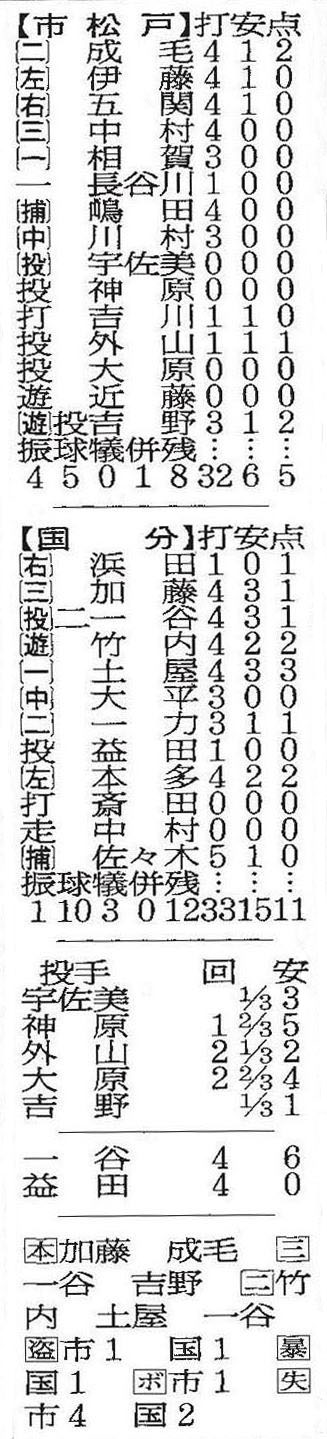 【市松戸】打安点
[二] 成毛 4 1 2
[左] 伊藤 4 1 0
[右] 五関 4 1 0
[三] 中村 4 0 0
[一] 相賀 3 0 0
一 長谷川 1 0 0
[捕] 嶋田 4 0 0
[中] 川村 3 0 0
[投] 宇佐美 0 0 0
投 神原 0 0 0
打 吉川 1 1 0
投 外山 1 1 1
投 大原 0 0 0
遊 近藤 0 0 0
[遊]投 吉野 3 1 2
振球犠併残………
4 5 0 1 8 32 6 5
【国分】打安点
[右] 浜田 1 0 1
[三] 加藤 4 3 1
[投]二 一谷 4 3 1
[遊] 竹内 4 2 2
[一] 土屋 4 3 3
[中] 大平 3 0 0
[二] 一力 3 1 1
投 益田 1 0 0
[左] 本多 4 2 2
打 斎田 0 0 0
走 中村 0 0 0
[捕] 佐々木 5 1 0
振球犠併残………
1 10 3 0 12 33 15 11
投手 回 安
宇佐美 1/3 3
神原 1 2/3 5
外山 2 1/3 2
大原 2 2/3 4
吉野 1/3 1
一谷 4 6
益田 4 0
[本]加藤 成毛 [三]
一谷 吉野 [二]竹
内 土屋 一谷
[盗]市1 国1 [暴]
国1 [ボ]市1 [失]
市4 国2